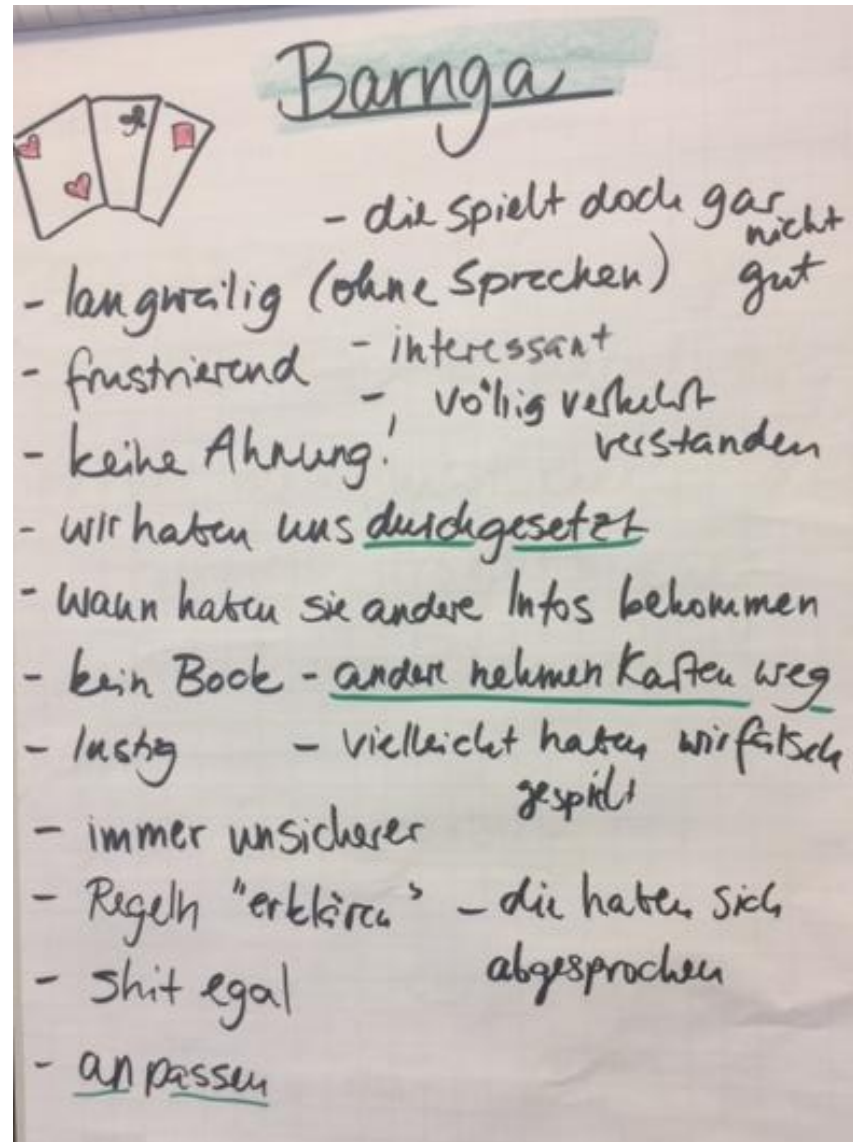 Barnga
- die spielt doch gar
nicht
gut
- langweilig (ohne Sprechen)
- frustrierend - interessant
- völlig verkehrt
verstanden
- keine Ahnung!
- wir haben uns durchgesetzt
- wann haben sie andere Infos bekommen
- kein Bock - andere nehmen Karten weg
- lustig - vielleicht haben wir falsch
gespielt
- immer unsicherer
- Regeln "erklären" - die haben sich
abgesprochen
- shit egal
- anpassen